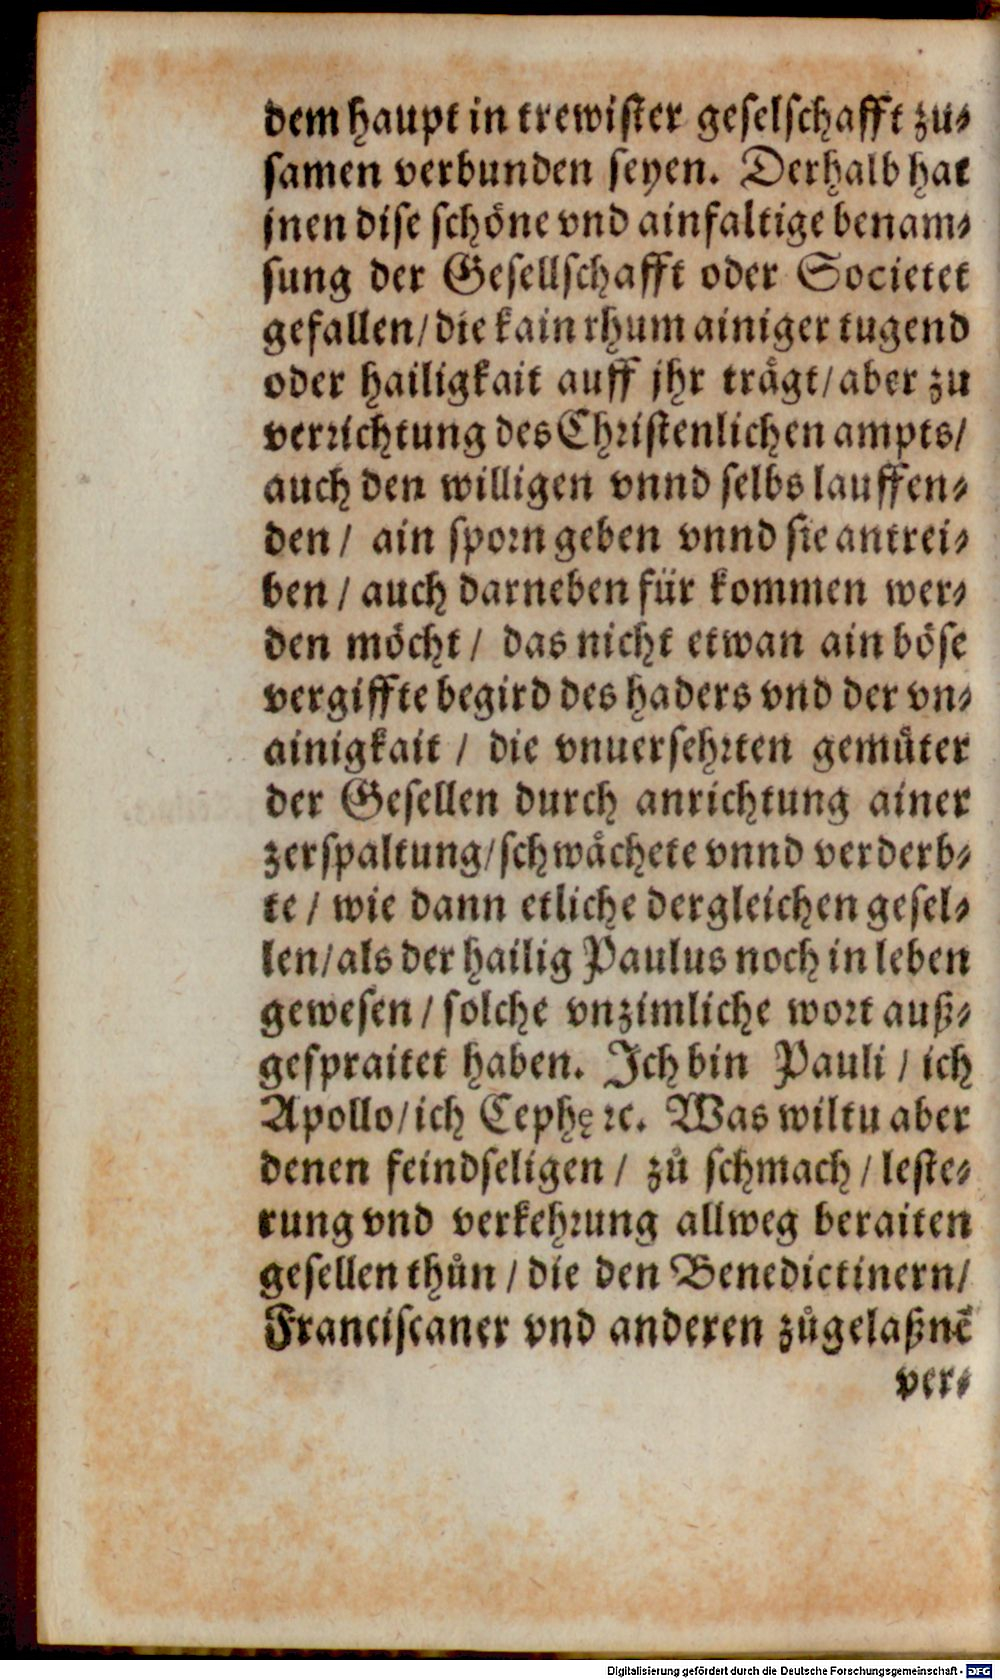 dem haupt in trewister geselschafft zu⸗
samen verbunden seyen. Derhalb hat
jnen dise schöne vnd ainfaltige benam⸗
sung der Gesellschafft oder Societet
gefallen/ die kain rhum ainiger tugend
oder hailigkait auff jhr trägt/ aber zu
verrichtung des Christenlichen ampts/
auch den willigen vnnd selbs lauffen⸗
den/ ain sporn geben vnnd sie antrei⸗
ben/ auch darneben für kommen wer⸗
den möcht/ das nicht etwan ain böse
vergiffte begird des haders vnd der vn⸗
ainigkait/ die vnuersehrten gemůter
der Gesellen durch anrichtung ainer
zerspaltung/ schwächete vnnd verderb⸗
te/ wie dann etliche dergleichen gesel⸗
len/ als der hailig Paulus noch in leben
gewesen/ solche vnzimliche wort auß⸗
gespraitet haben. Ich bin Pauli/ ich
Apollo/ ich Cephę ꝛc. Was wiltu aber
denen feindseligen/ zů schmach/ leste⸗
rung vnd verkehrung allweg beraiten
gesellen thůn/ die den Benedictinern/
Franciscaner vnd anderen zůgelaßnē
ver⸗
Digitalisierung gefördert durch die Deutsche Forschungsgemeinschaft - DFG